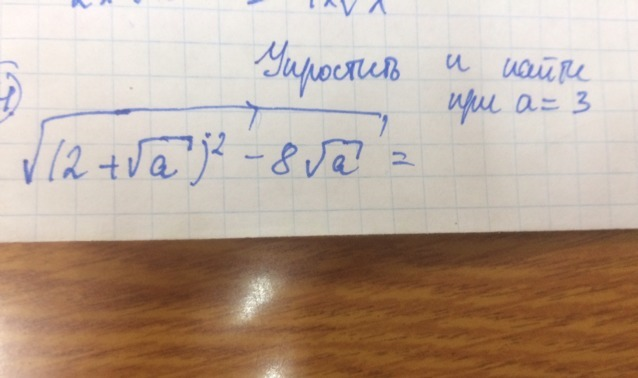 Упростить и найти
при a = 3
√((2 + √a)² - 8√a) =